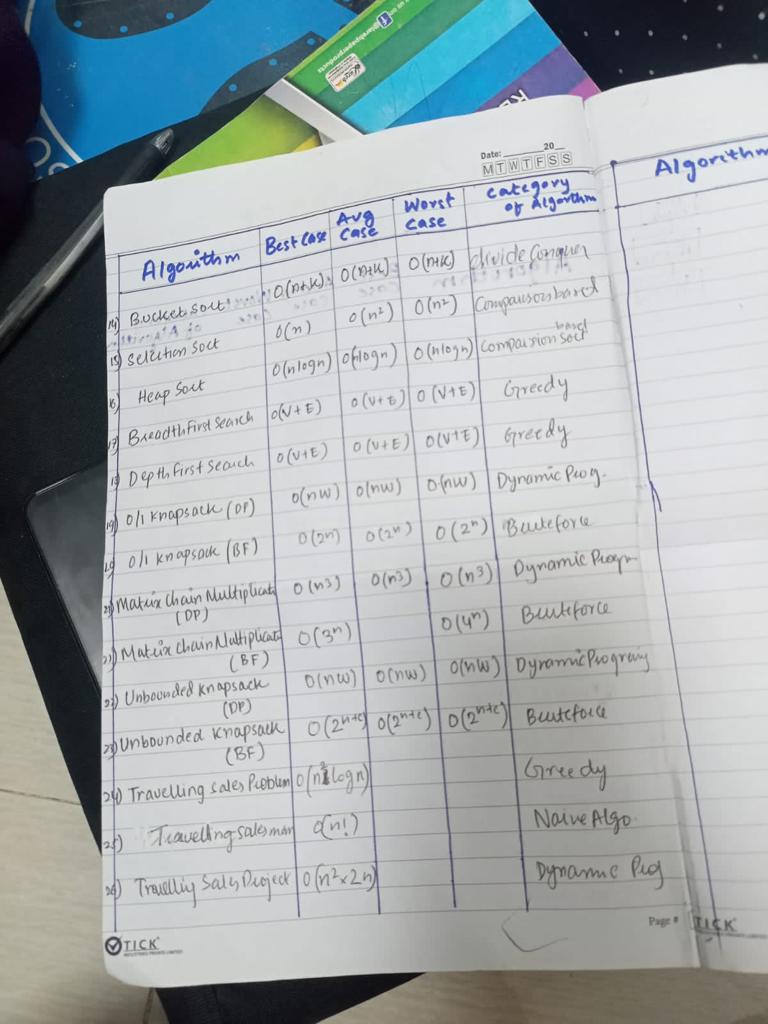 Date: ______20__
M T W T F S S
Algorithm Best Case Avg Case Worst Case Category of Algorithm
14) Bucket Sort O(n+k) O(n+k) O(n+k) divide Conquer
15) Selection Sort O(n) O(n²) O(n²) Comparison based
16) Heap Sort O(nlogn) O(nlogn) O(nlogn) Comparsion based Sort
17) Breadth First Search O(V+E) O(V+E) O(V+E) Greedy
18) Depth First Search O(V+E) O(V+E) O(V+E) Greedy
19) 0/1 Knapsack (DP) O(nW) O(nW) O(nW) Dynamic Prog.
0/1 Knapsack (BF) O(2n) O(2ⁿ) O(2ⁿ) Bruteforce
Matrix Chain Multiplicati (DP) O(n³) O(n³) O(n³) Dynamic Progr
21) Matrix chain Multiplicati (BF) O(3ⁿ) O(4ⁿ) Bruteforce
22) Unbounded Knapsack (DP) O(nW) O(nW) O(nW) Dynamic Programg
23) Unbounded Knapsack (BF) O(2ⁿ⁺ᶜ) O(2ⁿ⁺ᶜ) O(2ⁿ⁺ᶜ) Bruteforce
24) Travelling Sales Problem O(n²logn) Greedy
25) Travelling Salesman O(n!) Naive Algo.
26) Travelliy Sales Project O(n²x2n) Dynamic Prog
Page #
TICK
Algorithm
TICK